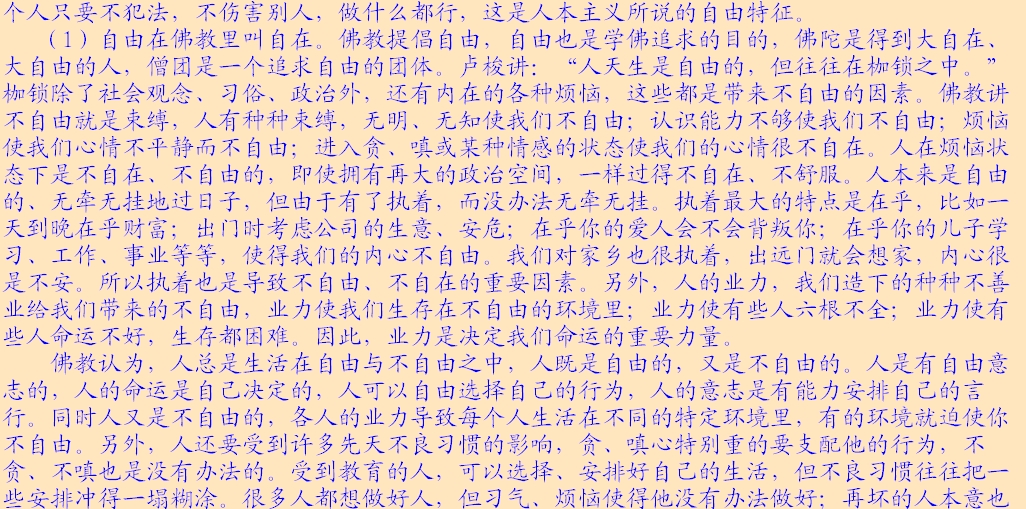 个人只要不犯法，不伤害别人，做什么都行，这是人本主义所说的自由特征。
（1）自由在佛教里叫自在。佛教提倡自由，自由也是学佛追求的目的，佛陀是得到大自在、
大自由的人，僧团是一个追求自由的团体。卢梭讲：“人天生是自由的，但往往在枷锁之中。”
枷锁除了社会观念、习俗、政治外，还有内在的各种烦恼，这些都是带来不自由的因素。佛教讲
不自由就是束缚，人有种种束缚，无明、无知使我们不自由；认识能力不够使我们不自由；烦恼
使我们心情不平静而不自由；进入贪、嗔或某种情感的状态使我们的心情很不自在。人在烦恼状
态下是不自在、不自由的，即使拥有再大的政治空间，一样过得不自在、不舒服。人本来是自由
的、无牵无挂地过日子，但由于有了执着，而没办法无牵无挂。执着最大的特点是在乎，比如一
天到晚在乎财富；出门时考虑公司的生意、安危；在乎你的爱人会不会背叛你；在乎你的儿子学
习、工作、事业等等，使得我们的内心不自由。我们对家乡也很执着，出远门就会想家，内心很
是不安。所以执着也是导致不自由、不自在的重要因素。另外，人的业力，我们造下的种种不善
业给我们带来的不自由，业力使我们生存在不自由的环境里；业力使有些人六根不全；业力使有
些人命运不好，生存都困难。因此，业力是决定我们命运的重要力量。
佛教认为，人总是生活在自由与不自由之中，人既是自由的，又是不自由的。人是有自由意
志的，人的命运是自己决定的，人可以自由选择自己的行为，人的意志是有能力安排自己的言
行。同时人又是不自由的，各人的业力导致每个人生活在不同的特定环境里，有的环境就迫使你
不自由。另外，人还要受到许多先天不良习惯的影响，贪、嗔心特别重的要支配他的行为，不
贪、不嗔也是没有办法的。受到教育的人，可以选择、安排好自己的生活，但不良习惯往往把一
些安排冲得一塌糊涂。很多人都想做好人，但习气、烦恼使得他没有办法做好；再坏的人本意也